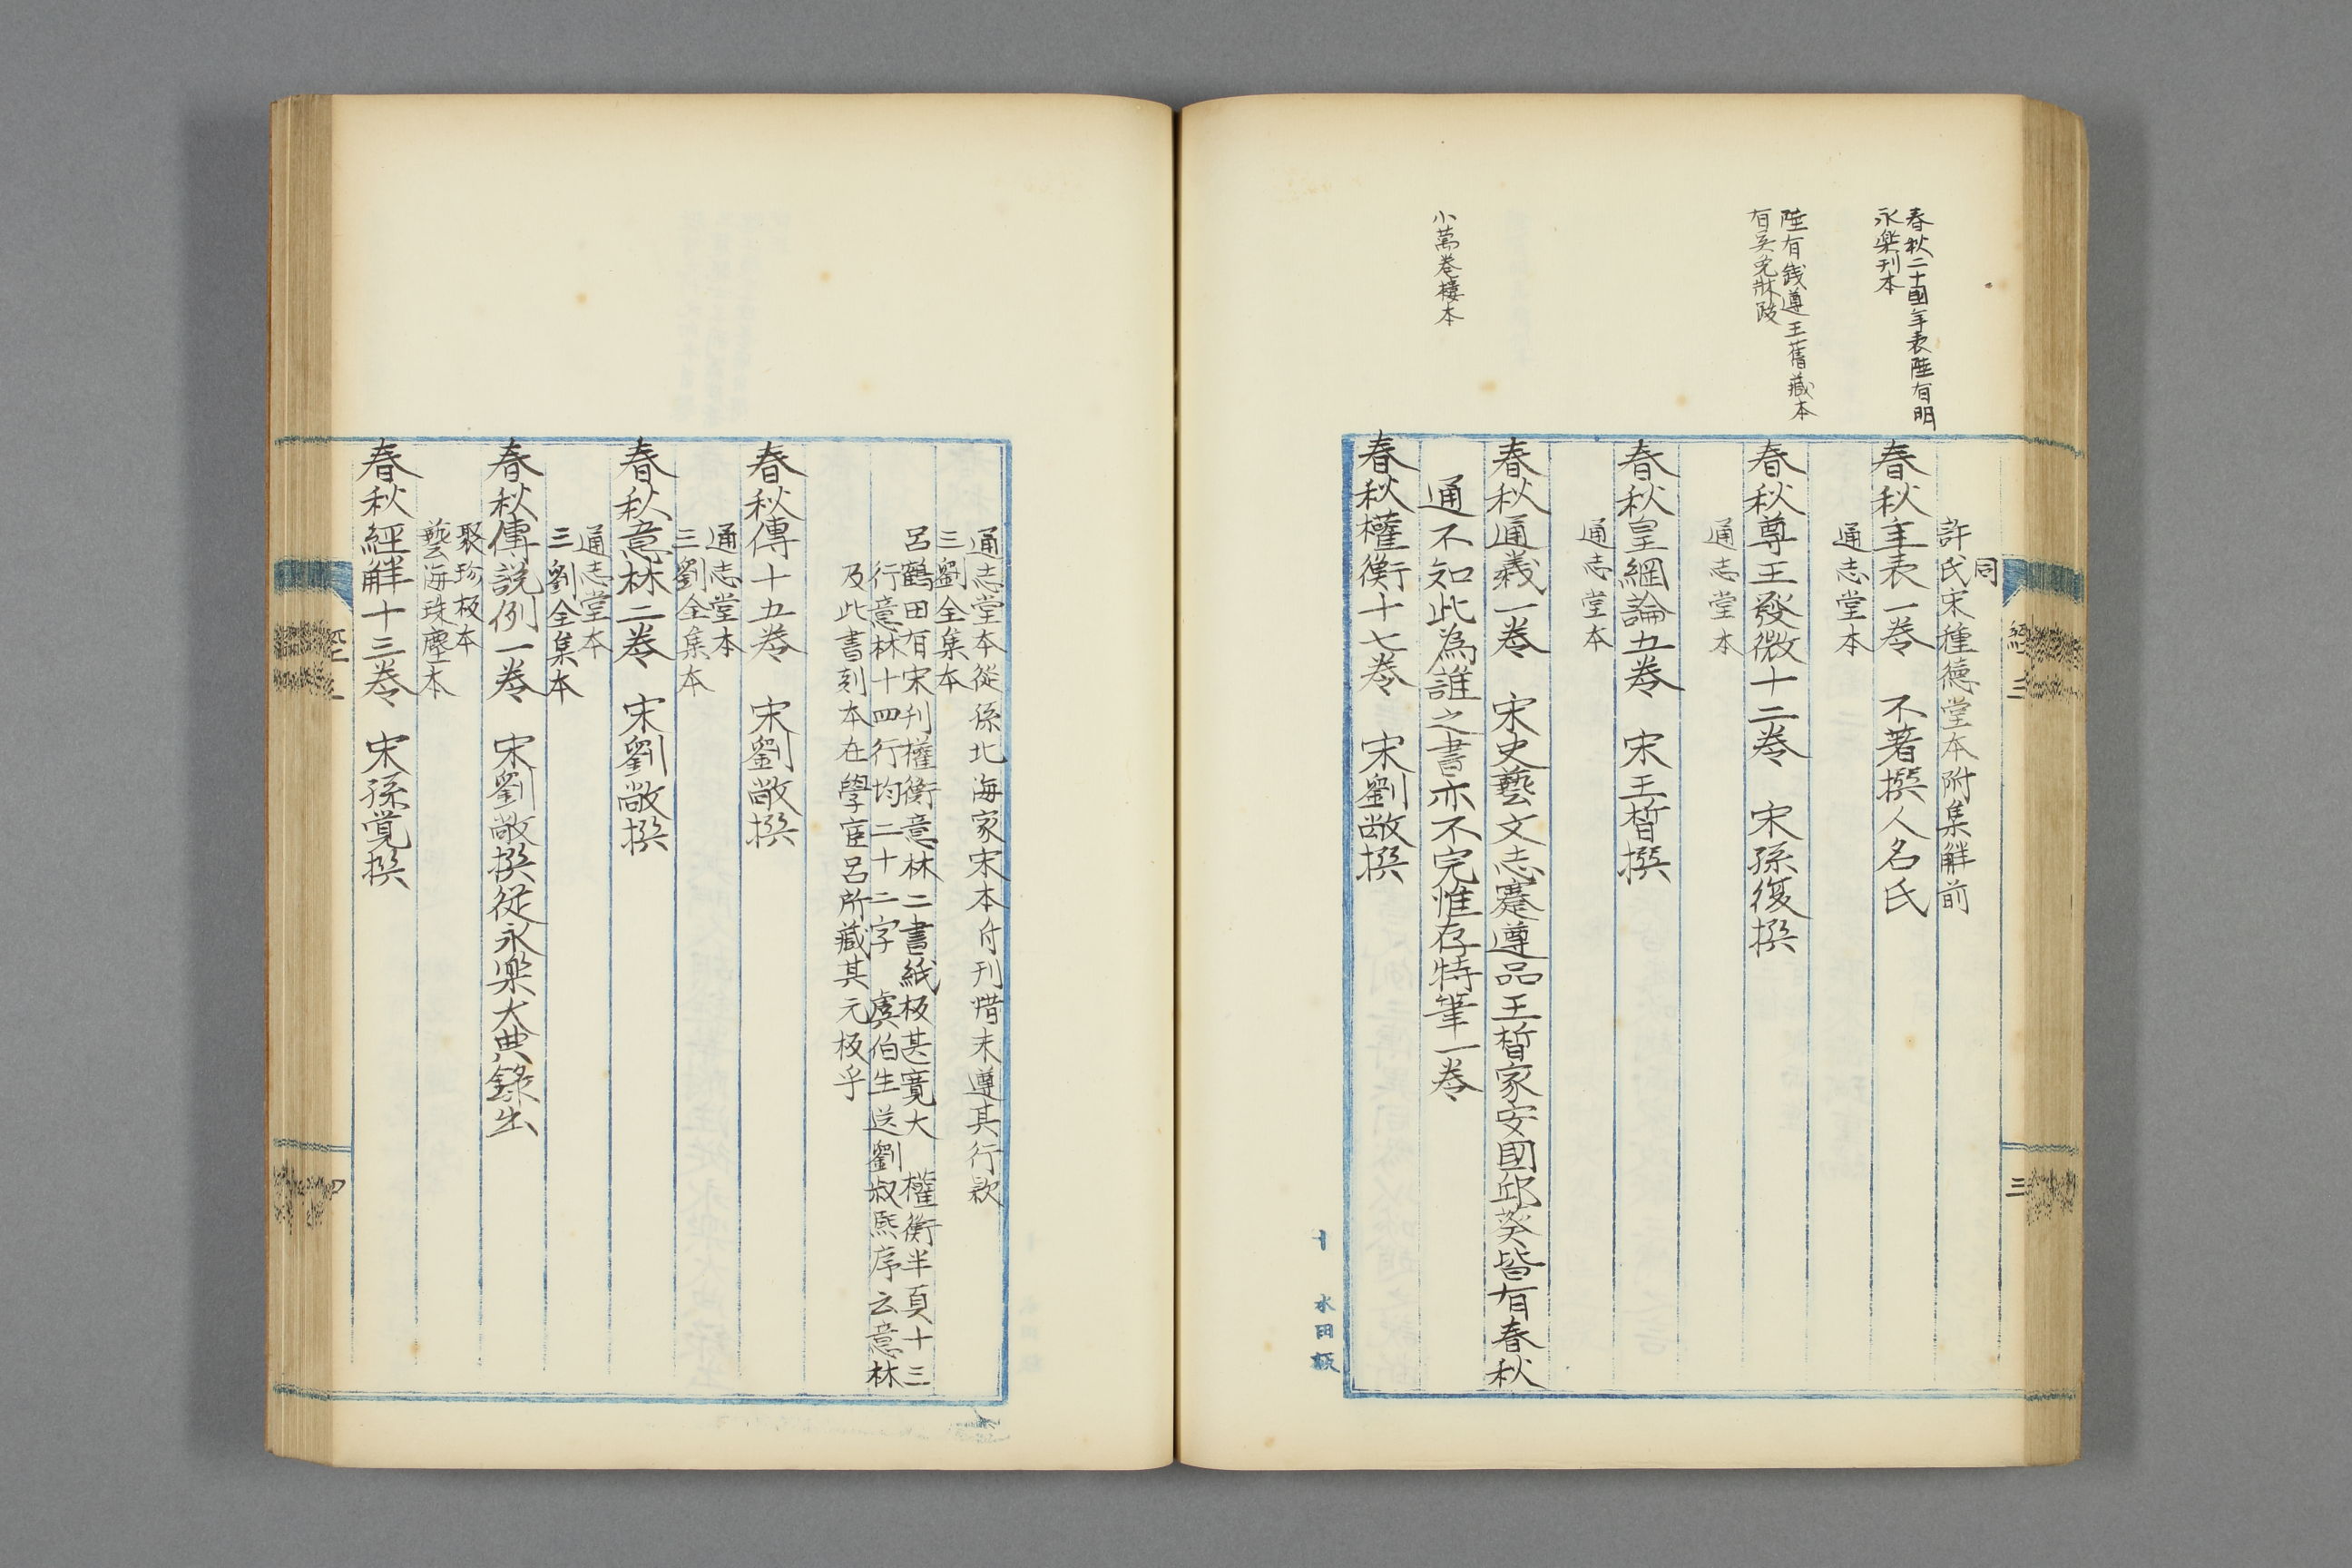 春秋二十國年表陸有明
永樂刊本
陸有錢遵王舊藏本
有吳免牀跋
小萬卷樓本
同
許氏宋種德堂本附集解前
春秋年表一卷　不著撰人名氏
通志堂本
春秋尊王發微十二卷　宋孫復撰
通志堂本
春秋皇綱論五卷　宋王晳撰
通志堂本
春秋通義一卷　宋史藝文志蹇遵品王晳家安國邱葵皆有春秋
通不知此為誰之書亦不完惟存特筆一卷
春秋權衡十七卷　宋劉敞撰
經三
三
水田板
通志堂本從孫北海家宋本付刊惜未遵其行款
三劉全集本
呂鶴田有宋刊權衡意林二書紙板甚寬大　權衡半頁十三
行意林十四行均二十二字　虞伯生送劉叔熙序云意林
及此書刻本在學宦呂所藏其元板乎
春秋傳十五卷　宋劉敞撰
通志堂本
三劉全集本
春秋意林二卷　宋劉敞撰
通志堂本
三劉全集本
春秋傳說例一卷　宋劉敞撰從永樂大典錄出
聚珍板本
藝海珠塵本
春秋經解十三卷　宋孫覺撰